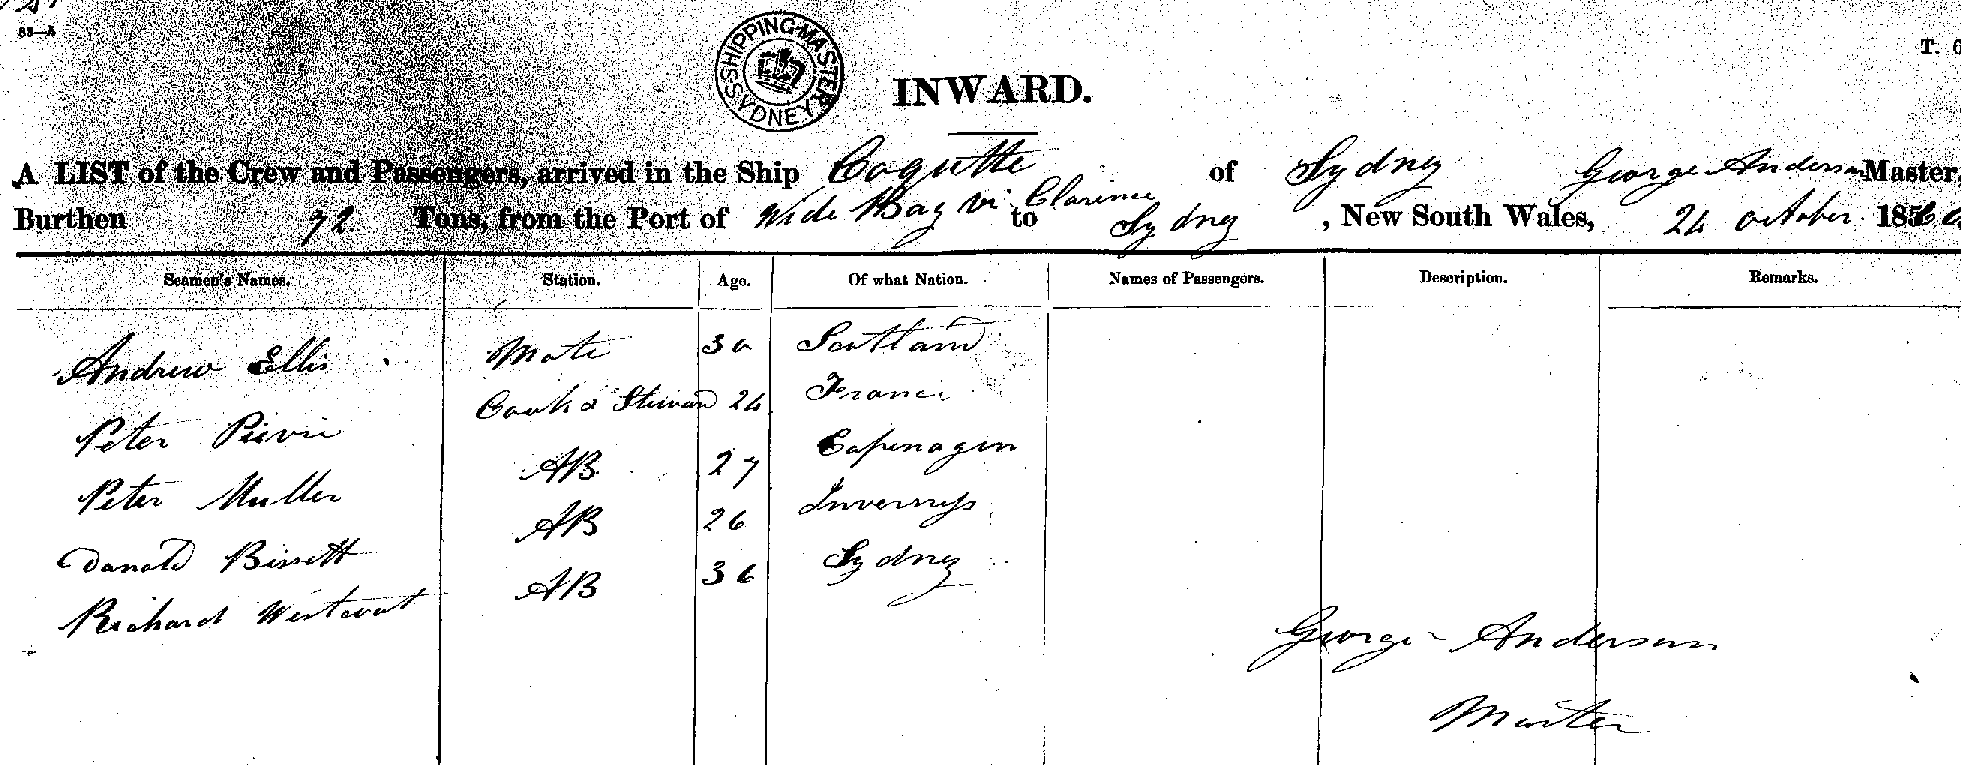 83—A
T. 6
SHIPPING MASTER SYDNEY
INWARD.
A LIST of the Crew and Passengers, arrived in the Ship Coquette of Sydney George Anderson Master,
Burthen 72 Tons, from the Port of Wide Bay vi Clarence to Sydney, New South Wales, 24 october 1860
Seamen's Names. Station. Age. Of what Nation. Names of Passengers. Description. Remarks.
Andrew Ellis Mate 30 Scotland
Peter Pierri Cook & Steward 24 France
Peter Muller AB 27 Copenagin
Donald Bissett AB 26 Inverness
Richard AB 36 Sydney
George Anderson
Master